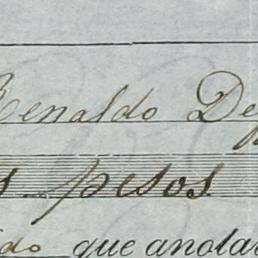 Renaldo De
pesos
que anotar